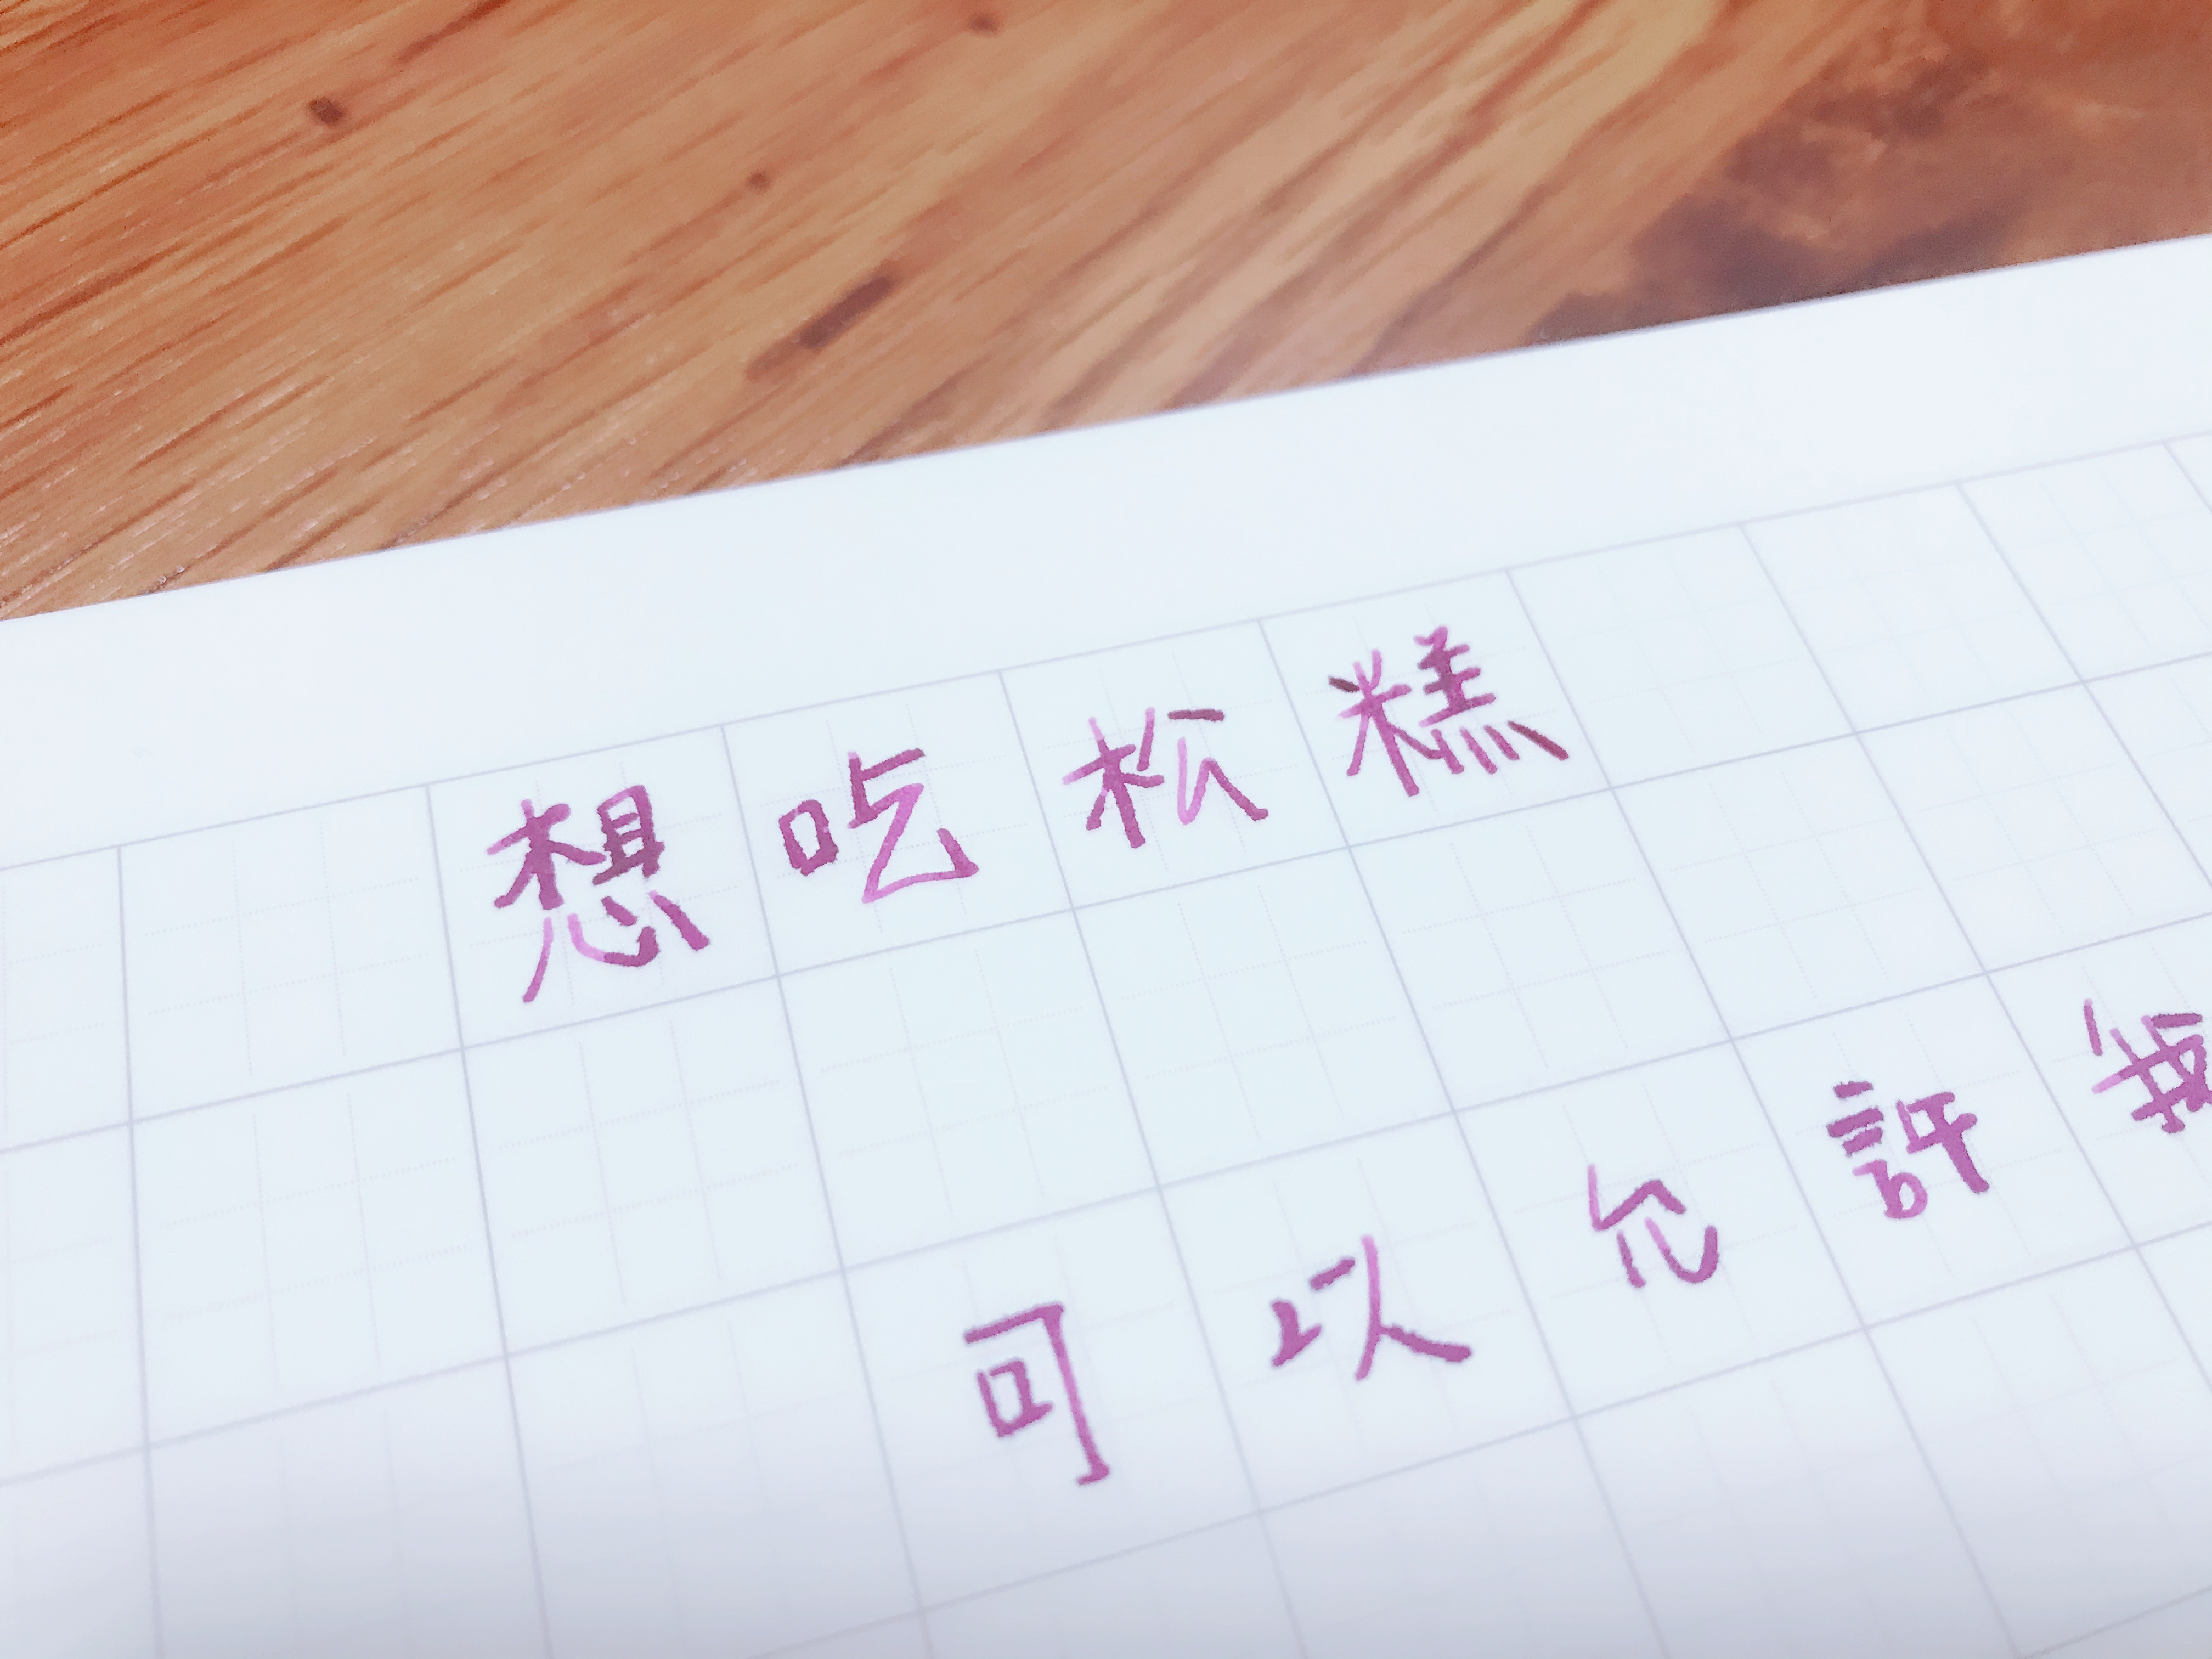 想吃松糕
可以允許我